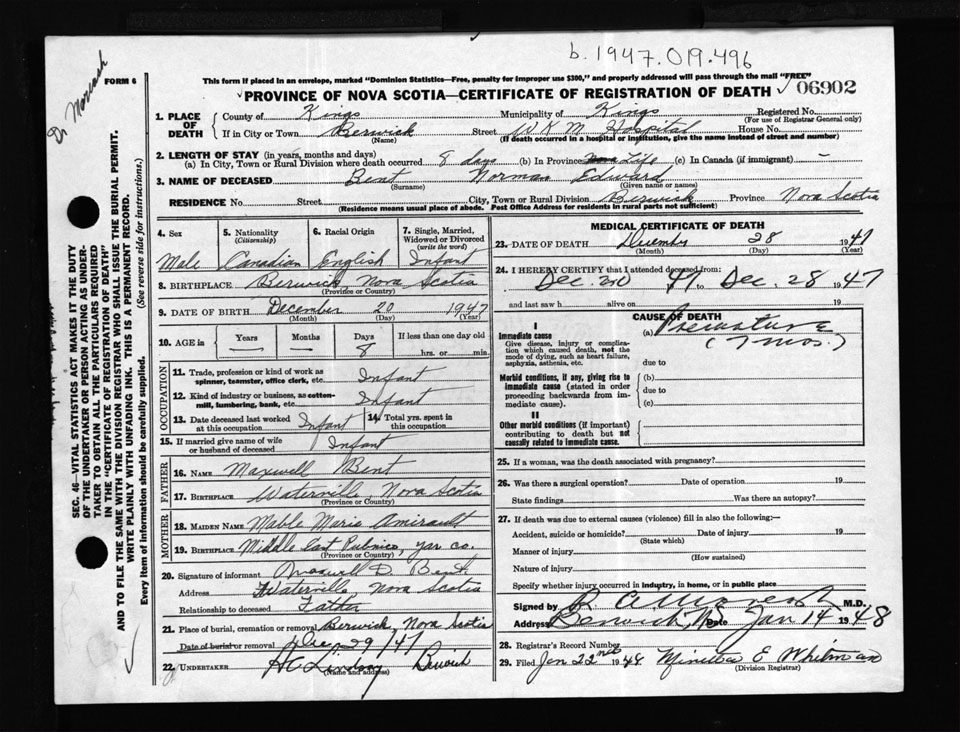 b. 1947.019.496
Dr Moreash
FORM 6
This form if placed in an envelope, marked "Dominion Statistics—Free, penalty for improper use $300," and properly addressed will pass through the mail "FREE"
PROVINCE OF NOVA SCOTIA—CERTIFICATE OF REGISTRATION OF DEATH
06902
1. PLACE OF DEATH
County of Kings Municipality of Kings Registered No.
(For use of Registrar General only)
If in City or Town Berwick Street W K M Hospital House No.
(Name) (If death occurred in a hospital or institution, give the name instead of street and number)
2. LENGTH OF STAY (in years, months and days)
(a) In City, Town or Rural Division where death occurred 8 days (b) In Province Life (c) In Canada (if immigrant) —
3. NAME OF DECEASED Bent Norman Edward
(Surname) (Given name or names)
RESIDENCE No. Street City, Town or Rural Division Berwick Province Nova Scotia
(Residence means usual place of abode. Post Office Address for residents in rural parts not sufficient)
4. Sex 5. Nationality (Citizenship) 6. Racial Origin 7. Single, Married, Widowed or Divorced (write the word)
Male Canadian English Infant
8. BIRTHPLACE Berwick, Nova Scotia
(Province or Country)
9. DATE OF BIRTH December 20 1947
(Month) (Day) (Year)
10. AGE in Years Months Days If less than one day old
— — 8 hrs. or min.
OCCUPATION
11. Trade, profession or kind of work as spinner, teamster, office clerk, etc. Infant
12. Kind of industry or business, as cotton-mill, lumbering, bank, etc. Infant
13. Date deceased last worked at this occupation Infant 14. Total yrs. spent in this occupation
15. If married give name of wife or husband of deceased Infant
FATHER
16. NAME Maxwell Bent
17. BIRTHPLACE Waterville, Nova Scotia
(Province or Country)
MOTHER
18. MAIDEN NAME Mable Maria Amirault
19. BIRTHPLACE Middle East Pubnico, Yar. Co.
(Province or Country)
20. Signature of informant Maxwell D. Bent
Address Waterville, Nova Scotia
Relationship to deceased Father
21. Place of burial, cremation or removal Berwick, Nova Scotia
Date of burial or removal Dec 29/47
22. UNDERTAKER H C Lindsay Berwick
(Name and address)
MEDICAL CERTIFICATE OF DEATH
23. DATE OF DEATH December 28 1947
(Month) (Day) (Year)
24. I HEREBY CERTIFY that I attended deceased from:
Dec. 20 47 to Dec. 28 1947
and last saw h alive on 19
CAUSE OF DEATH
I
Immediate cause
Give disease, injury or complication which caused death, not the mode of dying, such as heart failure, asphyxia, asthenia, etc.
(a) Premature
(7 mos.)
due to
Morbid conditions, if any, giving rise to immediate cause (stated in order proceeding backwards from immediate cause).
(b)
due to
(c)
II
Other morbid conditions (if important) contributing to death but not causally related to immediate cause.
25. If a woman, was the death associated with pregnancy?
26. Was there a surgical operation? Date of operation 19
State findings Was there an autopsy?
27. If death was due to external causes (violence) fill in also the following:—
Accident, suicide or homicide? Date of injury 19
(State which)
Manner of injury
(How sustained)
Nature of injury
Specify whether injury occurred in industry, in home, or in public place
Signed by M.D.
Address Berwick, NS Date Jan 14 1948
28. Registrar's Record Number
29. Filed Jan 22nd 1948 Minetta E Whitman
(Division Registrar)
SEC. 46—VITAL STATISTICS ACT MAKES IT THE DUTY
OF THE UNDERTAKER OR PERSON ACTING AS UNDER-
TAKER TO OBTAIN ALL THE PARTICULARS REQUIRED
IN THE "CERTIFICATE OF REGISTRATION OF DEATH"
AND TO FILE THE SAME WITH THE DIVISION REGISTRAR WHO SHALL ISSUE THE BURIAL PERMIT.
WRITE PLAINLY WITH UNFADING INK. THIS IS A PERMANENT RECORD.
Every item of Information should be carefully supplied. (See reverse side for instructions.)